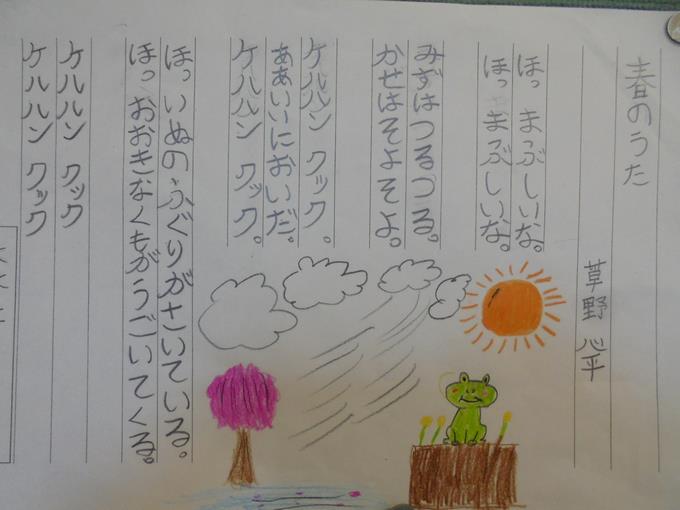 春のうた
草野 心平
ほっ まぶしいな。
ほっ まぶしいな。
みずはつるつる。
かぜはそよそよ。
ケルルン クック。
ああいいにおいだ。
ケルルン クック。
ほっ いぬのふぐりがさいている。
ほっ おおきなくもがうごいてくる。
ケルルン クック
ケルルン クック